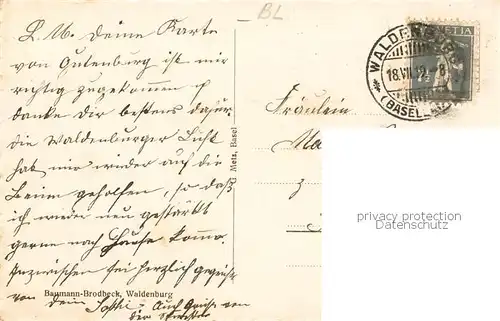 BL
L. M. Deine Karte
von Gutenburg ist mir
richtig zugekommen &
danke Dir bestens dafür.
die Waldenburger Luft
hat mir wieder auf die
Beine geholfen, so daß
ich wieder neu gestärkt
gerne nach Hause komme.
Inzwischen sei herzlich gegrüßt
von Dein
Auch Grüße von
der
Baumann-Brodbeck, Waldenburg
Metz, Basel
WALDENBURG
18.VII.12. 8
(BASELLAND)
HELVETIA
2
Fräulein
privacy protection
Datenschutz